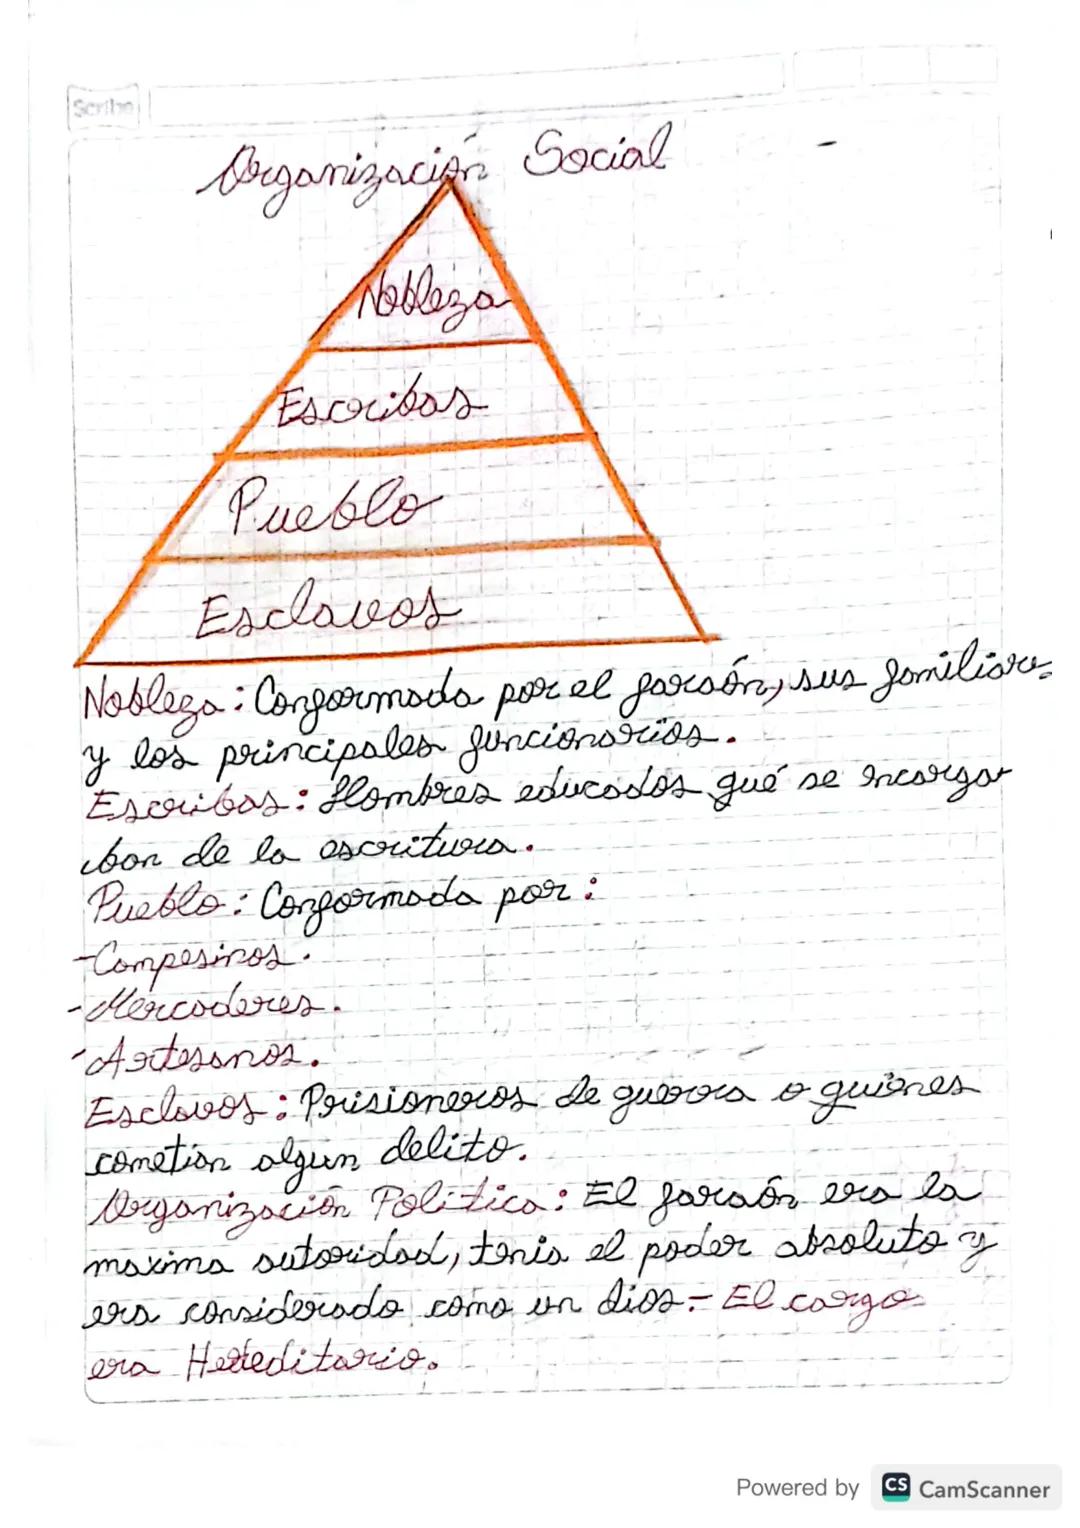 Scribe
Organización Social
Nobleza
Escribas
Pueblo
Esclavos
Nobleza: Conformada por el faraón, sus familiares
y los principales funcionarios.
Escribas: Hombres educados qué se encarga
ban de la escritura.
Pueblo: Conformada por:
-Campesinos.
-Mercaderes.
-Artesanos.
Esclavos: Prisioneros de guerra o quienes
cometian algun delito.
Organización Política: El faraón era la
maxima autoridad, tenia el poder absoluto y
era considerado como un dios.- El cargo
era Hereditario.
Powered by CS CamScanner